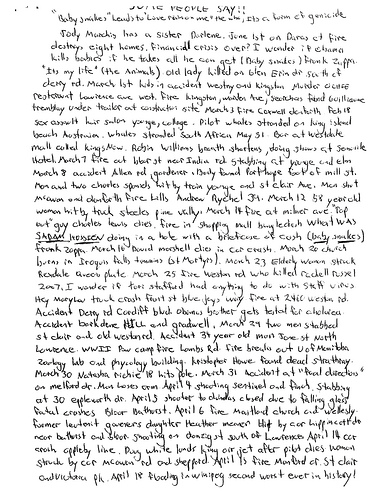 SOME PEOPLE SAY!!
"Baby snakes" leads to love poison me. He who, Its a form of genocide.
Jody has a sister Darlene. June 1st on Duras ct fire
destroys eight homes. Financial crisis over? I wonder if obama
kills babies if he takes all he can get (Baby snakes) Frank Zappa.
"Its my life" (the Animals). Old lady killed on Glen Erin dr south of
derry rd. March 1st kids in accident weston and kingston. Murder outside
restaurant Lawrence ave west. Fire kingston, warden Ave, searches find Guillaume
tremblay under trailer at construction site. March 3 fire Cornell danforth. Feb 18
sex assault hair salon yonge, college. Pilot whales stranded on king island
beach Australia. Whales stranded South Africa May 31. Bar at Westdale
mall called kings Now. Robin Williams breath shortens, doing shows at Seminole
Hotel. March 7 fire at bloor st near Indian rd. Stabbing at yonge and elm
March 8 accident Allen rd gardener. Body found Port hope foot of mill st.
Man and two charles spaniels hit by train yonge and st clair Ave. Man shot
Mcowan and danforth fire kills Andrew 34. March 12 58 year old
woman hit by truck steeles pine valley. March 18 fire at milner ave. Top
Gut guy charles lewis dies, fire in shopping mall bangladesh. What was
SADAM HUSSEIN doing in a hole with a briefcase of cash (baby snakes)
Frank Zappa. March 18 David marshell dies in car crash. March 20 church
burns in Iroquois Falls timmins (St Martyrs). March 23 Elderly woman struck
Rexdale Queens plate March 25 fire Weston rd who killed rachell russel
2007, I wonder if tom stafford had anything to do with Staff virus
Hey Marylou truck crash front st blue jays way fire at 2410 weston rd.
Accident Derry rd Cardiff blvd. Obamas brother gets tested for cholera.
Accident bathdene Hill and gradwell, March 29 two men stabbed
st clair and old weston rd. Accident 34 year old man Jane st North
Lawrence. WWII Pow camp fire Combs Rd. Fire breaks out U of Manitoba
Zoology lab and physiology building. kristopher Howe found dead strathroy.
March 30 Natasha richie 18 hits pole. March 31 Accident at "Pool directors"
on melford dr. Man loses arm April 4 shooting sentinel and finch. Stabbing
at 30 eppleworth dr. April 5 shooter to dundas closed due to falling glass
Fatal crashes Bloor Bathurst. April 6 fire Maitland church and wellesly.
Former lieutenant governers daughter Heather mamer Hit by car lippincott
near bathurst and bloor shooting on danzig st south of Lawrence April 18 car
crash appleby line. Doug white lands king air jet after pilot dies woman
struck by car Mcowan rd and sheppard. April 13 fire Munford cr. St clair
and victoria pk. April 18 flooding in winnipeg second worst ever in history!